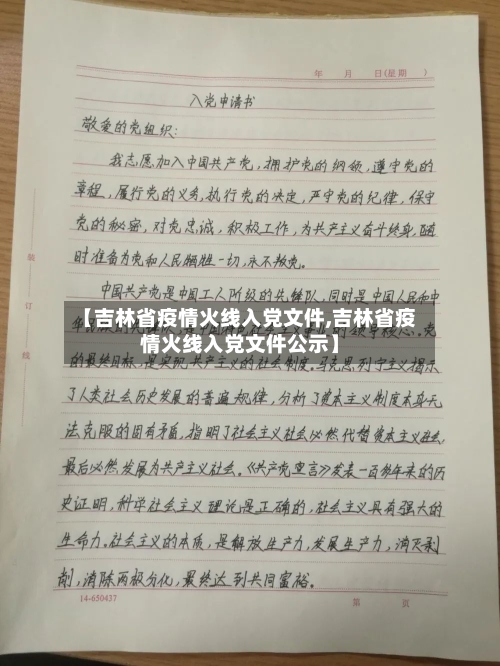 年 月 日(星期 )
入党申请书
敬爱的党组织：
我志愿加入中国共产党，拥护党的纲领，遵守党的
章程，履行党的义务，执行党的决定，严守党的纪律，保守
党的秘密，对党忠诚，积极工作，为共产主义奋斗终身，随
时准备为党和人民牺牲一切，永不叛党。
中国共产党是中国工人阶级的先锋队，同时是中国人民和中
【吉林省疫情火线入党文件,吉林省疫
情火线入党文件公示】
党
的最终目标，是实现共产主义的社会制度。马克思列宁主义揭示
了人类社会历史发展的普遍规律，分析了资本主义制度本身无
法克服的固有矛盾，指明了社会主义社会必然代替资本主义社会，
最后必然发展为共产主义社会。《共产党宣言》发表一百多年来的历
史证明，科学社会主义理论是正确的，社会主义具有强大的
生命力。社会主义的本质，是解放生产力，发展生产力，消灭剥
削，消除两极分化，最终达到共同富裕。
装
订
线
14-650437
第 页